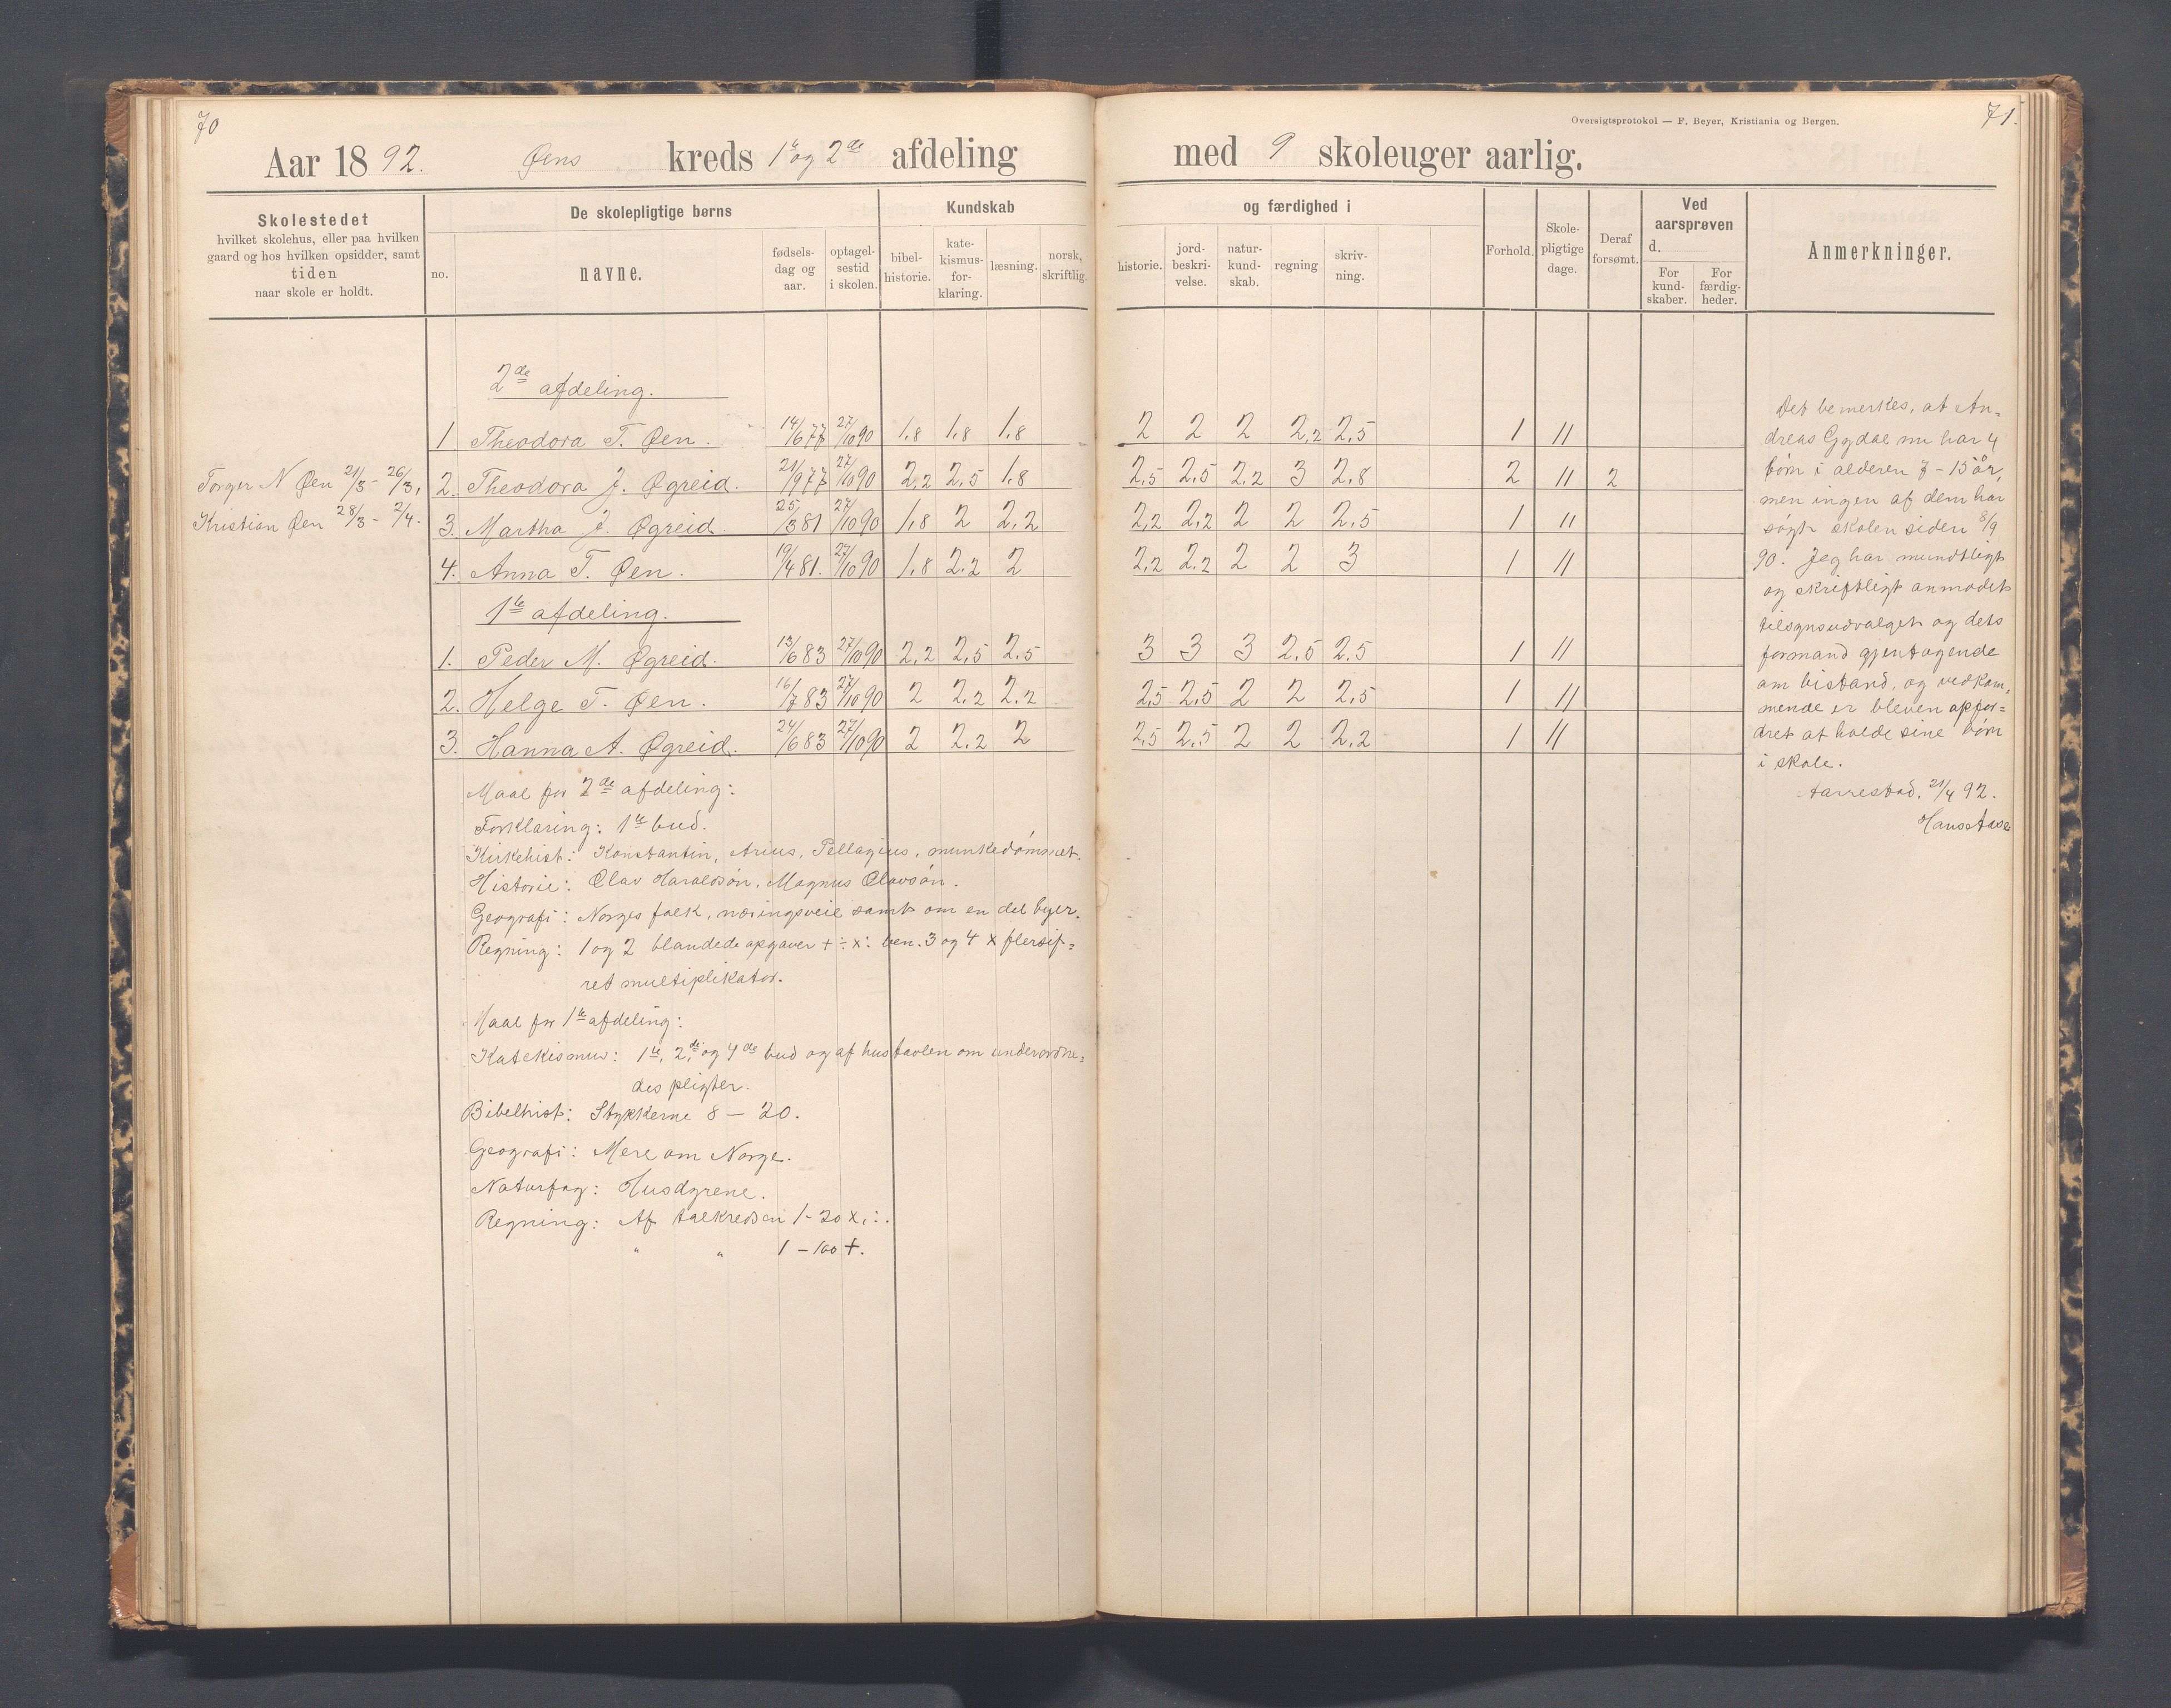 70
71.
Oversigtsprotokol — F. Beyer, Kristiania og Bergen.
Aar 1892. Øens kreds 1ste og 2den afdeling med 9 skoleuger aarlig.
Skolestedet
hvilket skolehus, eller paa hvilken
gaard og hos hvilken opsidder, samt
tiden
naar skole er holdt.
De skolepligtige børns
no.
navne.
fødsels-
dag og
aar.
optagel-
sestid
i skolen.
Kundskab
bibel-
historie.
kate-
kismus-
for-
klaring.
læsning.
norsk,
skriftlig.
og færdighed i
historie.
jord-
beskri-
velse.
natur-
kund-
skab.
regning
skriv-
ning.
Forhold.
Skole-
pligtige
dage.
Deraf
forsømt.
Ved
aarsprøven
d.
For
kund-
skaber.
For
færdig-
heder.
Anmerkninger.
2de afdeling.
1 Theodora T. Øen. 14/6 77 27/10 90 1.8 1.8 1.8 2 2 2 2,2 2,5 1 11
Torger N Øen 21/3 - 26/3,
2. Theodora J. Øgreid. 21/9 77 27/10 90 2,2 2,5 1.8 2,5 2,5 2,2 3 2,8 2 11 2
Kristian Øen 28/3 - 2/4.
3. Martha J. Øgreid. 25/3 81 27/10 90 1,8 2 2,2 2,2 2,2 2 2 2,5 1 11
4. Anna T. Øen. 19/4 81. 27/10 90 1,8 2,2 2 2,2 2,2 2 2 3 1 11
1te afdeling.
1. Peder M. Øgreid. 13/6 83 27/10 90 2,2 2,5 2.5 3 3 3 2,5 2.5 1 11
2. Helge T. Øen. 16/7 83 27/10 90 2 2,2 2,2 2,5 2,5 2 2 2,5 1 11
3. Hanna A. Øgreid. 24/6 83 27/10 90 2 2,2 2 2,5 2,5 2 2 2,2 1 11
Maal for 2de afdeling:
Forklaring: 1te bud.
Kirkehist: Konstantin, Arius, Pellagius, munkedømmet.
Historie: Olav Haraldsøn, Magnus Olavsøn.
Geografi: Norges folk, næringsveie samt om en del byer.
Regning: 1 og 2 blandede opgaver + ÷ x : ben. 3 og 4 x flersif=
ret multiplikator.
Maal for 1te afdeling:
Katekismus: 1te, 2de og 4de bud og af hustavlen om underordne=
des pligter.
Bibelhist: Stykkerne 8 — 20.
Geografi: Mere om Norge.
Naturfag: Husdyrene.
Regning: Af talkredsen 1-20 x, :.
" " 1-100 +.
Det bemerkes, at An=
dreas Gydal nu har 4
børn i alderen 7-15 år,
men ingen af dem har
søgt skolen siden 8/9
90. Jeg har mundtligt
og skriftligt anmodet
tilsynsudvalget og dets
formand gjentagende
om bistand, og vedkom=
mende er bleven opfor=
dret at holde sine børn
i skole.
Aarrestad, 21/4 92.
Hans Aase